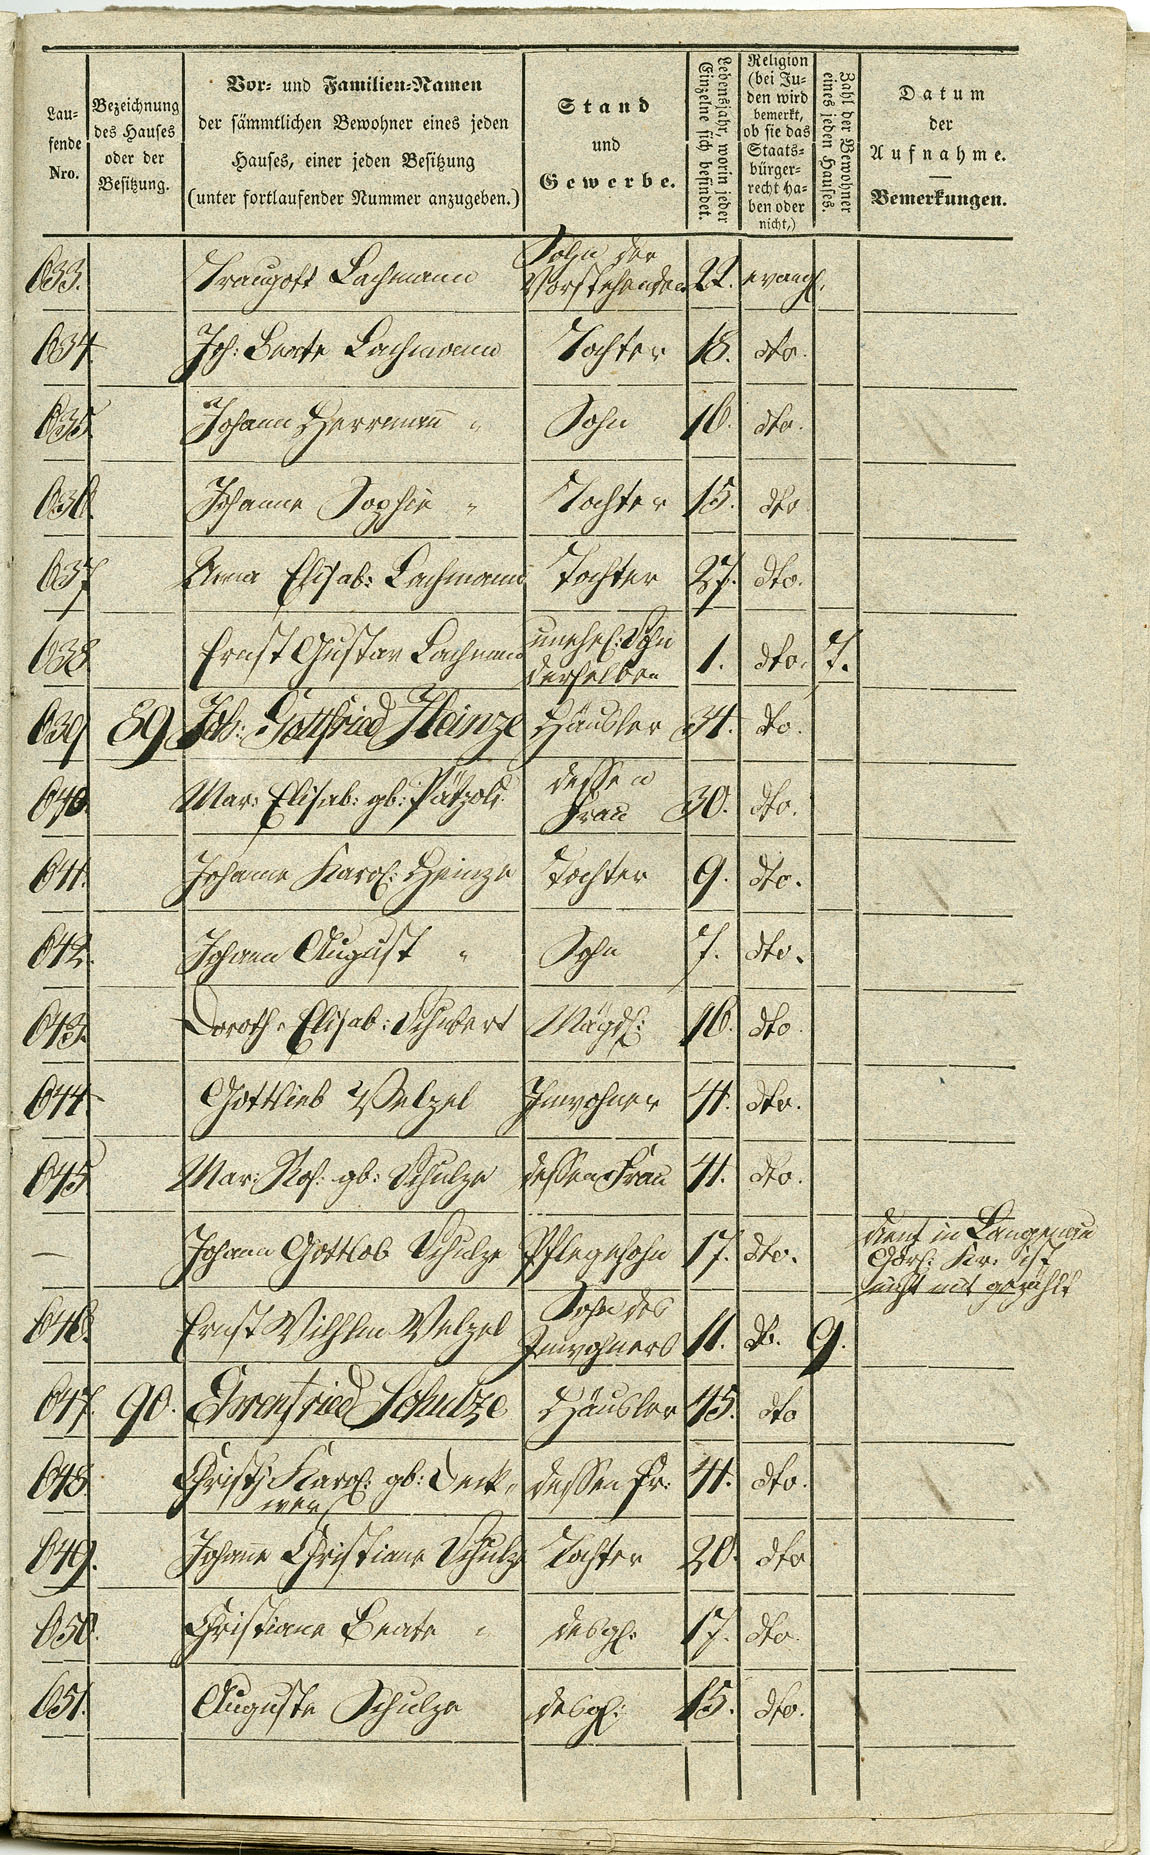 Lau-
fende
Nro.
Bezeichnung
des Hauses
oder der
Besitzung.
Vor- und Familien-Namen
der sämmtlichen Bewohner eines jeden
Hauses, einer jeden Besitzung
(unter fortlaufender Nummer anzugeben.)
Stand
und
Gewerbe.
Lebensjahr, worin jeder
Einzelne sich befindet.
Religion
(bei Ju-
den wird
bemerkt,
ob sie das
Staats-
bürger-
recht ha-
ben oder
nicht,)
Zahl der Bewohner
eines jeden Hauses.
Datum
der
Aufnahme.
Bemerkungen.
633. Traugott Lachmann Sohn der Vorstehenden 22. evangl.
634 Joh: Beate Lachmann Tochter 18. dto.
635. Johann Herrmann " Sohn 16. dto.
636. Johanne Sophie " Tochter 15. dto
637 Anna Elisab: Lachmann Tochter 27. dto.
638 Ernst Gustav Lachmann unehel: Sohn derselben 1. dto. 7.
639 89 Joh: Gottfried Heinze Häusler 34. dto.
640. Mar: Elisab: gb: Pätzold dessen Frau 30. dto.
641. Johanne Karol: Heinze Tochter 9. dto.
642. Johann August " Sohn 7. dto.
643. Doroth: Elisab: Schubert Mägdl: 16. dto
644. Gottlieb Welzel Inwohner 41. dto.
645 Mar: Ros: gb: Schulze dessen Frau 41. dto.
— Johann Gottlob Schulze Pflegesohn 17. dto. dient in Langenau
Görl: Kr: ist
nicht mit gezählt
646. Ernst Wilhlm Welzel Sohn des Inwohners 11. do. 9.
647. 90. Ehrenfried Schulze Häusler 45. dto
648. Christ: Karol: gb: Deck-
wer dessen Fr: 41. dto.
649. Johanne Christiane Schulze Tochter 20. dto
650. Christiane Beate " desgl. 17. dto.
651. Auguste Schulze desgl: 15. dto.